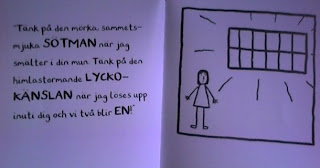 "Tänk på den mörka, sammets-
mjuka SÖTMAN när jag
smälter i din mun. Tänk på den
himlastormande LYCKO-
KÄNSLAN när jag löses upp
inuti dig och vi två blir EN!"